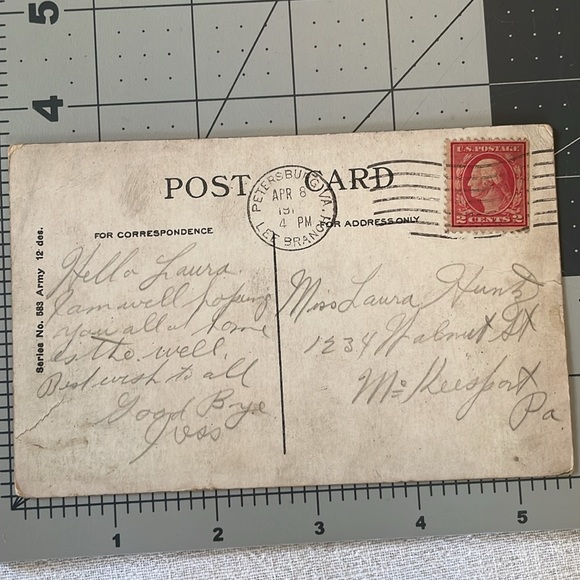 POST CARD
PETERSBURG, VA.
APR 8
191
4 PM
LEE BRANCH
U.S. POSTAGE
2 CENTS 2
FOR CORRESPONDENCE
FOR ADDRESS ONLY
Series No. 583 Army 12 des.
Hello Laura.
I am well hopeing
you all at home
is the well.
Best wish to all
Good Bye
Miss Laura Huntz
1234 Walnut St
McKeesport
Pa.
5
4
1
2
3
4
5